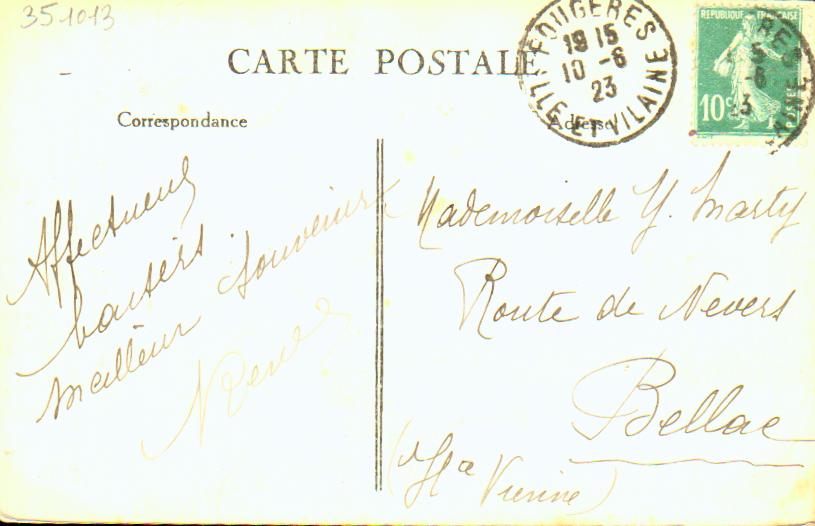 351013
CARTE POSTALE
FOUGERES
ILLE-ET-VILAINE
19 15
10 -6
23
REPUBLIQUE FRANÇAISE
10c
Correspondance
Adresse
Affectueux
baisers.
meilleur souvenir
Mademoiselle Y. Marty
Route de Nevers
Bellac
(Hte Vienne)